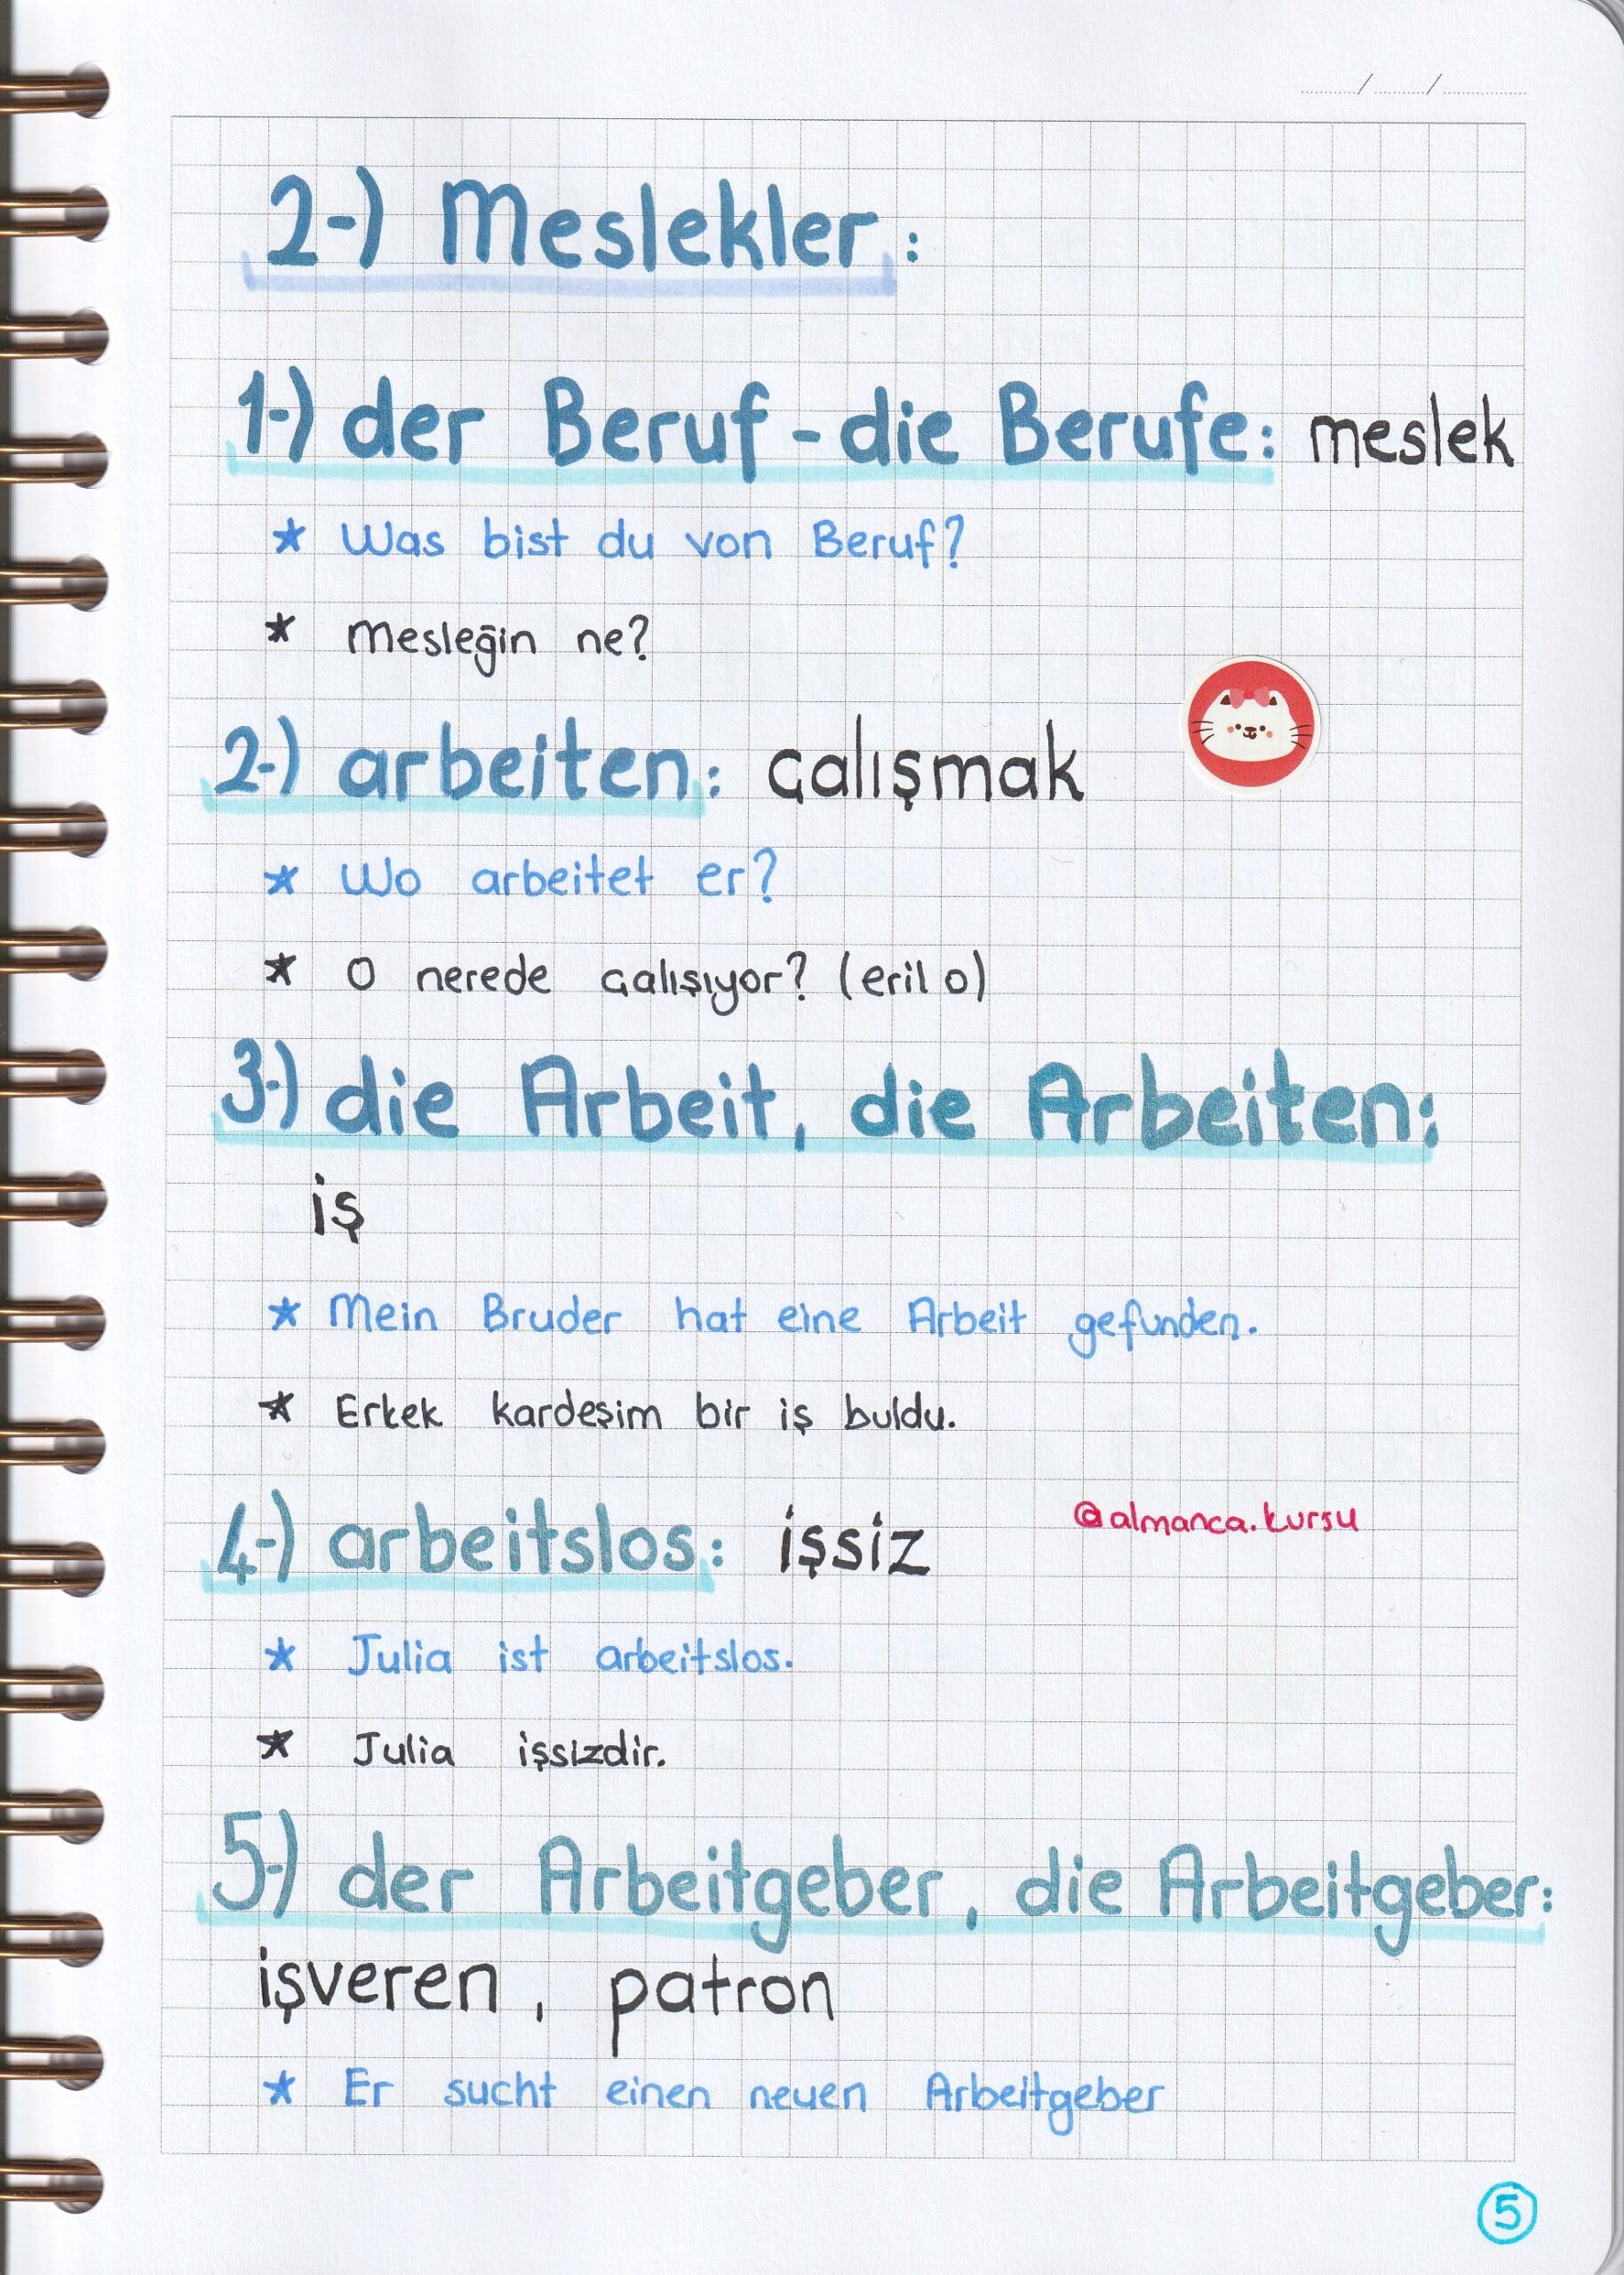 2-) Meslekler:
1-) der Beruf - die Berufe: meslek
* Was bist du von Beruf?
* Mesleğin ne?
2-) arbeiten: çalışmak
* Wo arbeitet er?
* O nerede çalışıyor? (eril o)
3-) die Arbeit, die Arbeiten:
iş
* Mein Bruder hat eine Arbeit gefunden.
* Erkek kardeşim bir iş buldu.
4-) arbeitslos: işsiz
@almanca.kursu
* Julia ist arbeitslos.
* Julia işsizdir.
5-) der Arbeitgeber, die Arbeitgeber:
işveren, patron
* Er sucht einen neuen Arbeitgeber
5